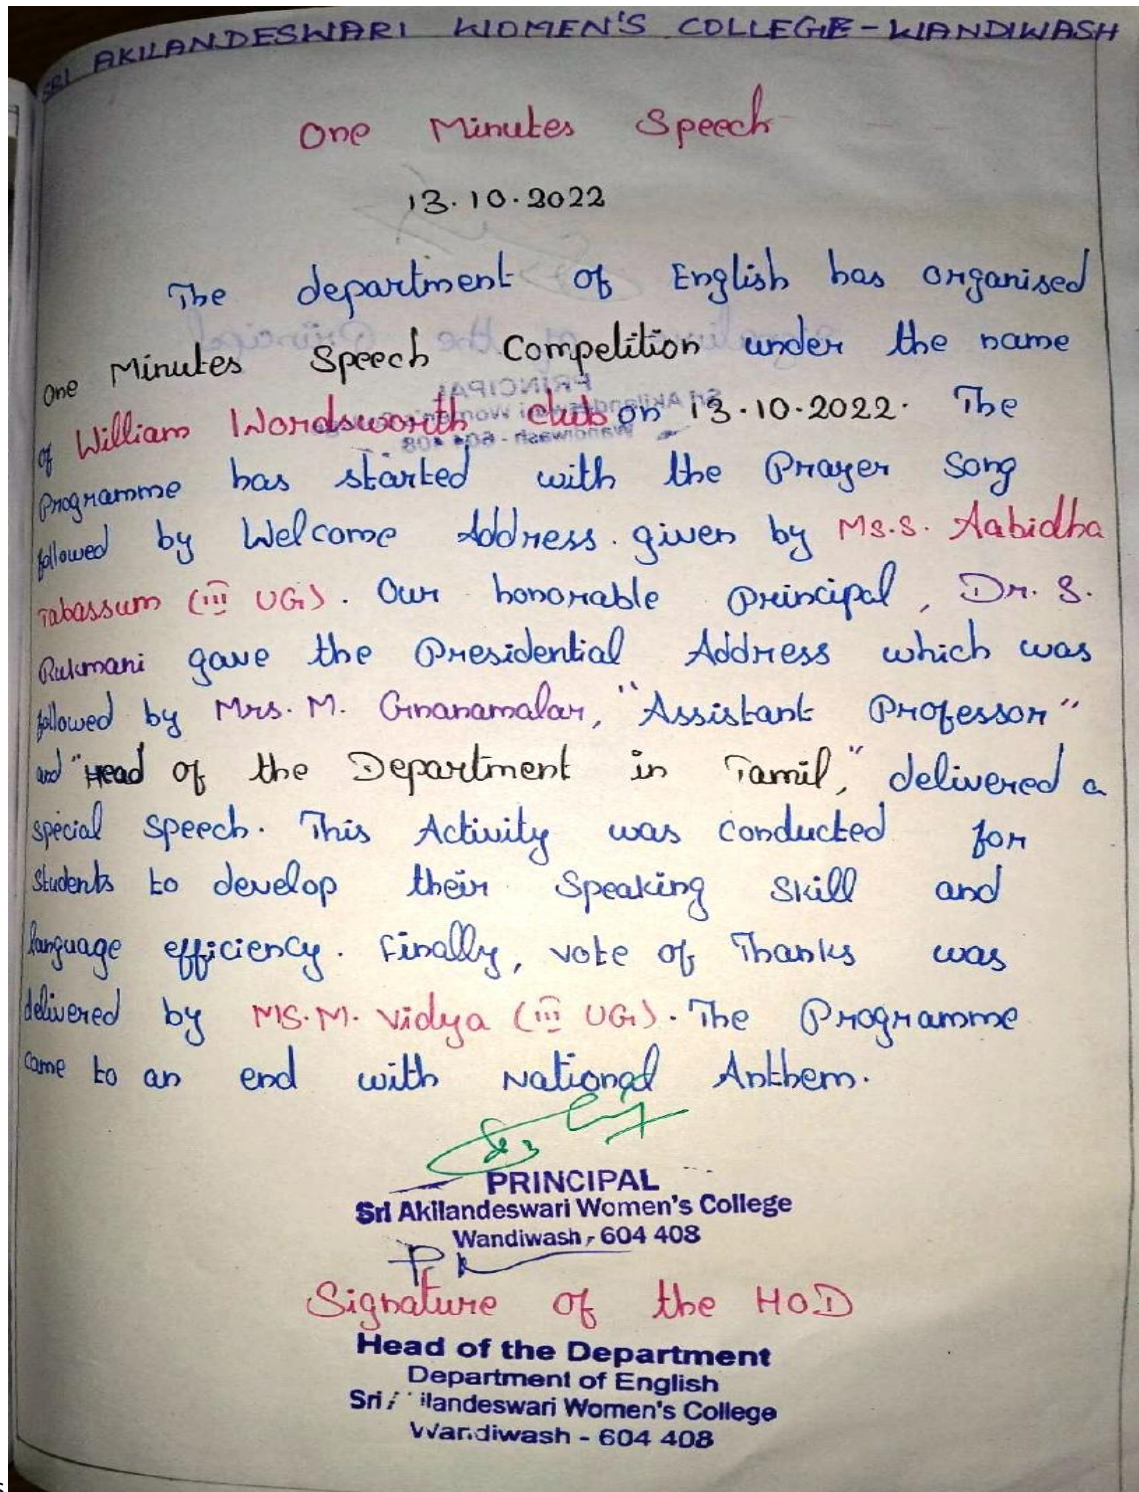 SRI AKILANDESWARI WOMEN'S COLLEGE - WANDIWASH
One Minutes Speech
13.10.2022
The department of English has organised
One Minutes Speech Competition under the name
of William Wordsworth club on 13.10.2022. The
Programme has started with the Prayer Song
followed by Welcome Address. given by Ms.S. Aabidha
Tabassum (III UG). Our honorable Principal, Dr. S.
Rukmani gave the Presidential Address which was
followed by Mrs. M. Gnanamalar, "Assistant Professor"
and "Head of the Department in Tamil," delivered a
special speech. This Activity was conducted for
students to develop their Speaking skill and
language efficiency. Finally, vote of Thanks was
delivered by MS.M. Vidya (III UG). The Programme
came to an end with National Anthem.
PRINCIPAL
Sri Akilandeswari Women's College
Wandiwash, 604 408
Signature of the HOD
Head of the Department
Department of English
Sri ilandeswari Women's College
Wandiwash - 604 408